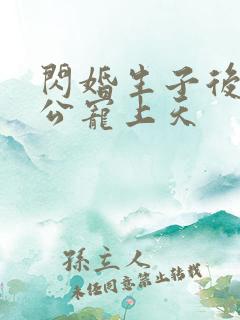 閃婚生子後
公寵上天
孫立人
未經同意禁止轉載